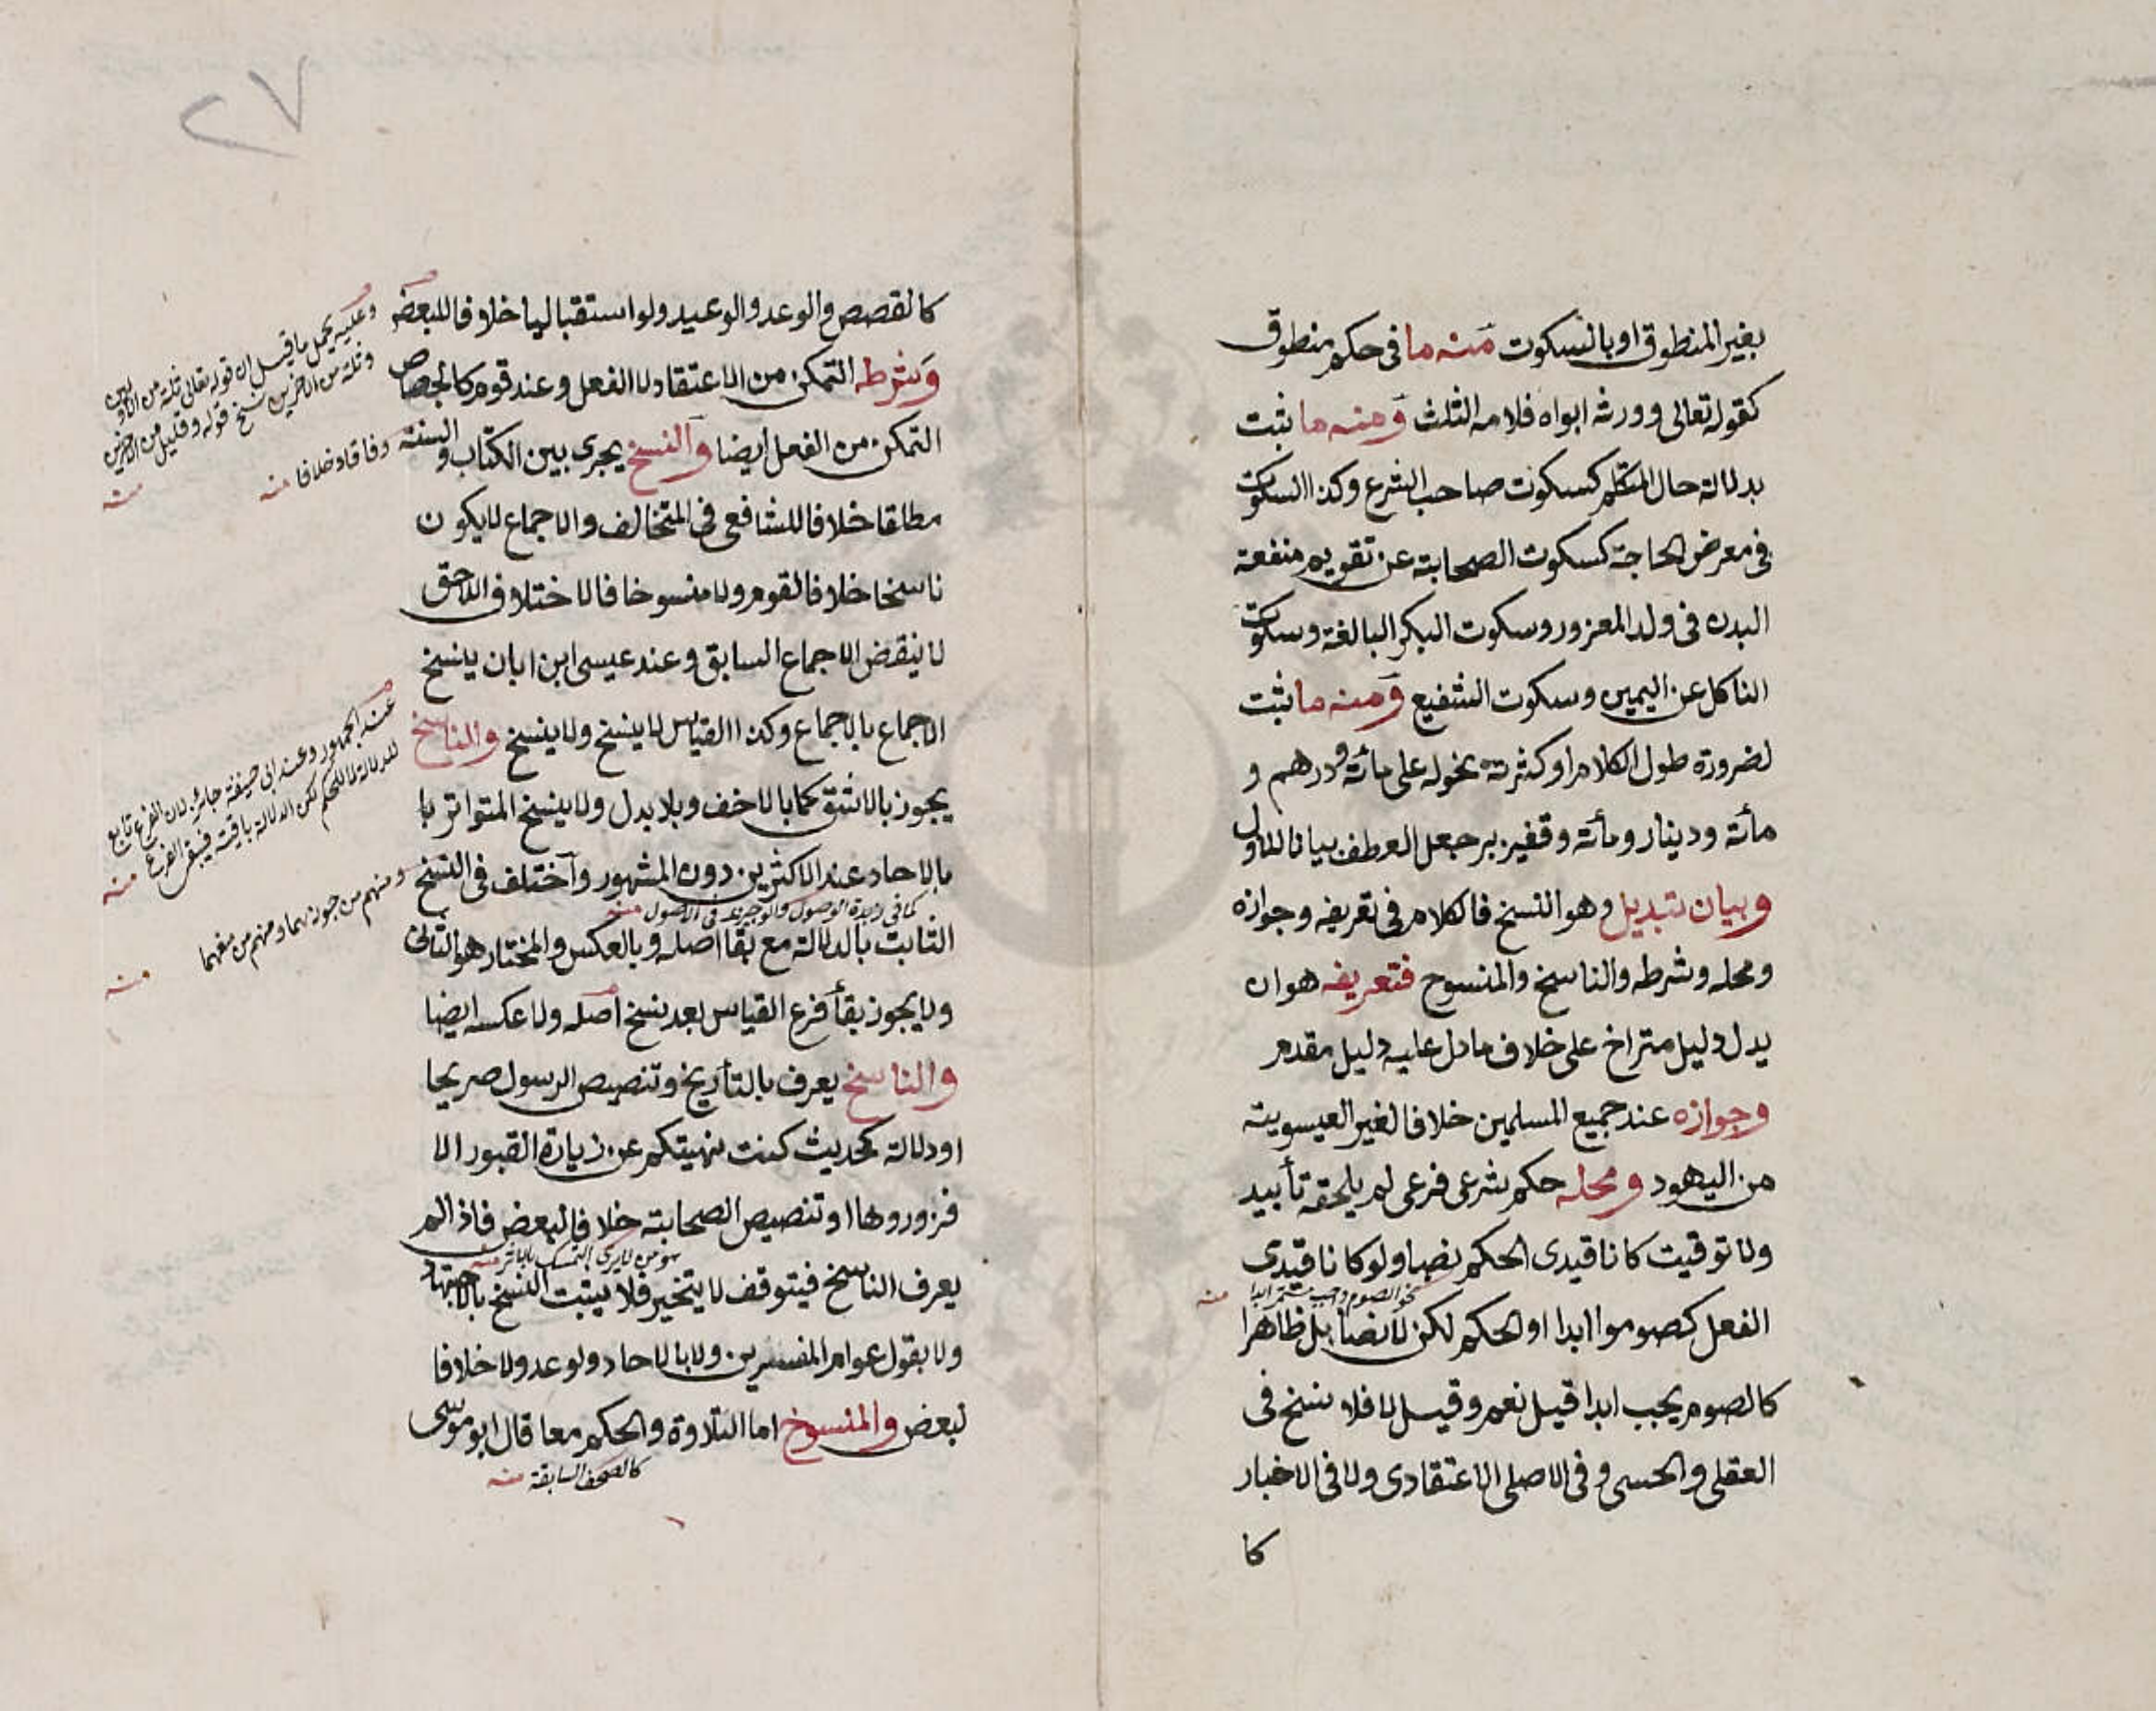 بغير المنطوق او بالسكوت منه ما فى حكم منطوق
كقوله تعالى وورثه ابواه فلامه الثلث ومنه ما ثبت
بدلالة حال المتكلم كسكوت صاحب الشرع وكذا السكوت
فى معرض الحاجة كسكوت الصحابة عن تقويم منفعة
البدن فى ولد المغرور وسكوت البكر البالغة وسكوت
الناكل عن اليمين وسكوت الشفيع ومنه ما ثبت
لضرورة طول الكلام او كثرته نحو له على مائة ودرهم و
مأئة ودينار ومأئة وقفيز بر جعل العطف بيانا للاول
وبيان تبديل وهو النسخ فالكلام فى تعريفه وجوازه
ومحله وشرطه والناسخ والمنسوخ فتعريفه هو ان
يدل دليل متراخ على خلاف ما دل عليه دليل مقدم
وجوازه عند جميع المسلمين خلافا لغير العيسوية
من اليهود ومحله حكم شرعى فرعى لم يلحقه تأبيد
ولا توقيت كانا قيدى الحكم نصا ولو كانا قيدى
نحو الصوم واجب مستمر ابدا منه
الفعل كصوموا ابدا او الحكم لكن لا نصا بل ظاهرا
كالصوم يجب ابدا قيل نعم وقيل لا فلا نسخ فى
العقلى والحسى وفى الاصلى الاعتقادى ولا فى الاخبار
كا
٢٧
كالقصص والوعد والوعيد ولو استقباليا خلافا للبعض
وشرطه التمكن من الاعتقاد لا الفعل وعند قوم كالجصاص
التمكن من الفعل ايضا والنسخ يجرى بين الكتاب والسنة
مطلقا خلافا للشافعى فى المتخالف والاجماع لا يكون
ناسخا خلافا لقوم ولا منسوخا فالاختلاف اللاحق
لا ينقض الاجماع السابق وعند عيسى ابن ابان ينسخ
الاجماع بالاجماع وكذا القياس لا ينسخ ولا ينسخ والناسخ
يجوز بالاشق كما بالاخف وبلا بدل ولا ينسخ المتواتر با
بالاحاد عند الاكثرين دون المشهور واختلف فى النسخ
كما فى زبدة الوصول والوجيز فى الاصول منه
الثابت بالدلالة مع بقا اصله وبالعكس والمختار هو الثانى
ولا يجوز بقأ فرع القياس بعد نسخ اصله ولا عكسه ايضا
والناسخ يعرف بالتأريخ وتنصيص الرسول صريحا
او دلالة كحديث كنت نهيتكم عن زيارة القبور الا
فزوروها او تنصيص الصحابة خلافا لبعض فاذا لم
هو من لا يرى التمسك بالاثر منه
يعرف الناسخ فيتوقف لا يتخير فلا يثبت النسخ بالاجتهاد
ولا بقول عوام المفسرين ولا بالاحاد ولو عدولا خلافا
لبعض والمنسوخ اما التلاوة والحكم معا قال ابو موسى
كالصحف السابقة منه
وعليه يحمل ما قيل ان قوله تعالى ثلة من الاولين
وثلة من الاخرين نسخ قوله وقليل من الاخرين
منه
وفاقا وخلافا منه
عند الجمهور وعند ابى حنيفة جائز لان الفرع تابع
للدلالة لا للحكم لكن الدلالة باقية فيبقى الفرع منه
ومنهم من جوزهما ومنهم من منعهما
منه